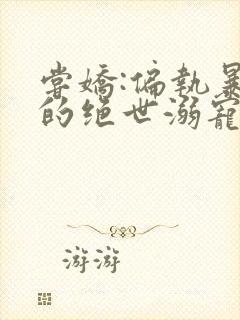 掌嬌:偏執暴
的绝世溺寵
游游